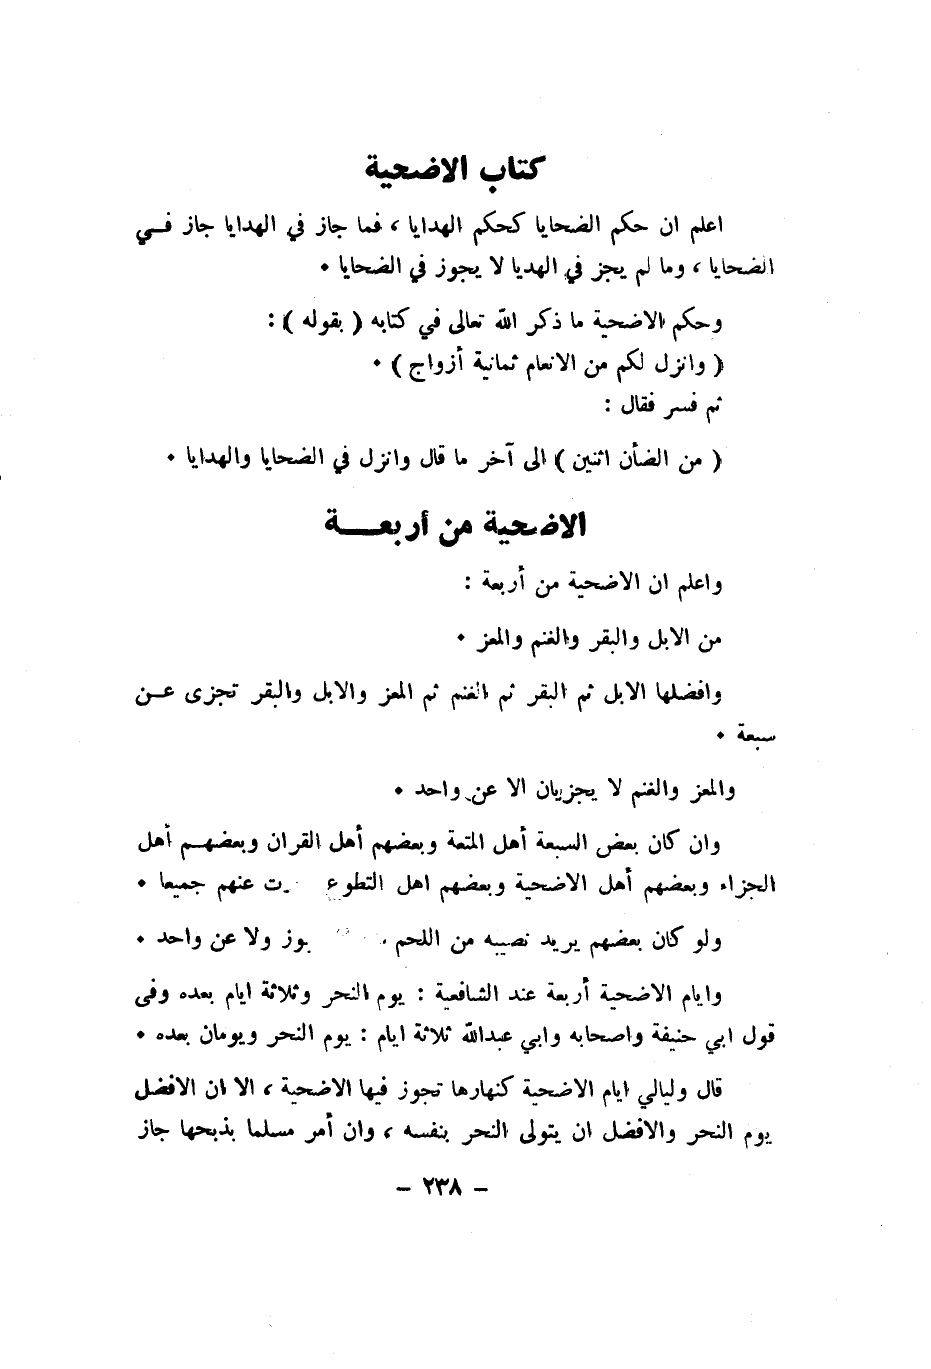 كتاب الاضحية
اعلم ان حكم الضحايا كحكم الهدايا ، فما جاز في الهدايا جاز فــي
الضحايا ، وما لم يجز في الهديا لا يجوز في الضحايا •
وحكم الاضحية ما ذكر الله تعالى في كتابه ( بقوله ) :
( وانزل لكم من الانعام ثمانية أزواج ) •
ثم فسر فقال :
( من الضأن اثنين ) الى آخر ما قال وانزل في الضحايا والهدايا •
الاضحية من أربعـــة
واعلم ان الاضحية من أربعة :
من الابل والبقر والغنم والمعز •
وافضلها الابل ثم البقر ثم الغنم ثم المعز والابل والبقر تجزى عــن
سبعة •
والمعز والغنم لا يجزيان الا عن واحد •
وان كان بعض السبعة أهل المتعة وبعضهم أهل القران وبعضهــم أهل
الجزاء وبعضهم أهل الاضحية وبعضهم اهل التطوع عنهم جميعا •
ولو كان بعضهم يريد نصيبه من اللحم ولا عن واحد •
وايام الاضحية أربعة عند الشافعية : يوم النحر وثلاثة ايام بعده وفى
قول ابي حنيفة واصحابه وابي عبدالله ثلاثة ايام : يوم النحر ويومان بعده •
قال وليالي ايام الاضحية كنهارها تجوز فيها الاضحية ، الا ان الافضل
يوم النحر والافضل ان يتولى النحر بنفسه ، وان أمر مسلما بذبحها جاز
– ٢٣٨ –